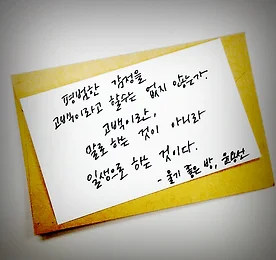 평범한 감정을
고백이라고 할수는 없지 않은가.
고백이란,
말로 하는 것이 아니라
일생으로 하는 것이다.
- 울기 좋은 방, 윤승선